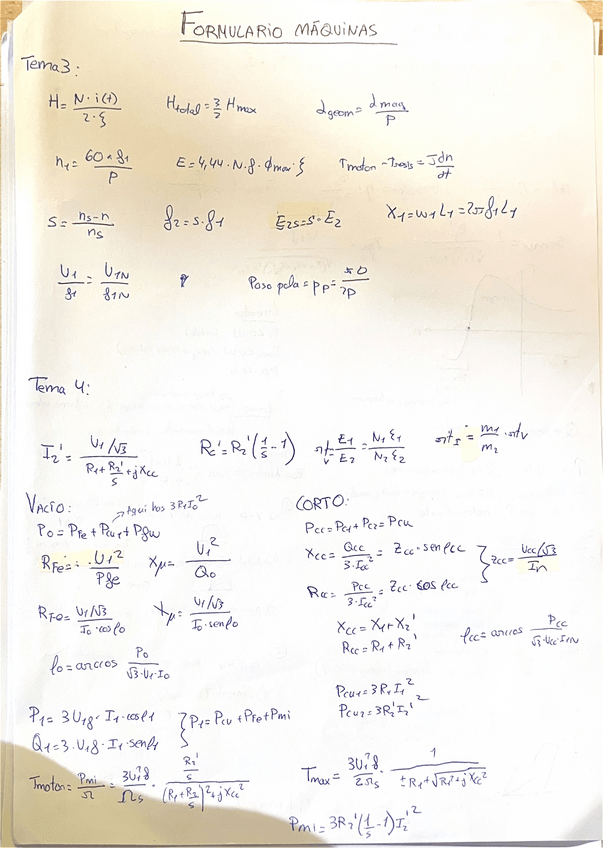 FORMULARIO MÁQUINAS
Tema 3:
H = N · i(t) / 2 · ξ    Htotal = 3/2 Hmax    αgeom = αmag / P
n1 = 60 · f1 / P    E = 4,44 · N · f · Φmax · ξ    Tmotor - Tresis = J dn / dt
S = ns - n / ns    f2 = s · f1    E2s = s · E2    X1 = w1 L1 = 2π f1 L1
U1 / f1 = U1N / f1N    Paso polar = Pp = πD / 2P
Tema 4:
I2' = U1/√3 / R1 + R2'/s + jXcc    Rc' = R2' (1/s - 1)    rtv = E1 / E2 = N1 ξ1 / N2 ξ2    rti = m1 / m2 · rtv
VACÍO: → Aquí hos 3R1I0²
P0 = PFe + Pcu1 + Pfw
RFe = U1² / Pfe    Xμ = U1² / Q0
RFe = U1/√3 / I0 · cosφ0    Xμ = U1/√3 / I0 · senφ0
φ0 = arccos P0 / √3 · U1 · I0
CORTO:
Pcc = Pc1 + Pc2 = Pcu
Xcc = Qcc / 3 · Icc² = Zcc · senφcc } Zcc = Ucc/√3 / In
Rcc = Pcc / 3 · Icc² = Zcc · cosφcc
Xcc = X1 + X2'
Rcc = R1 + R2'    φcc = arccos Pcc / √3 · Ucc · I1N
Pcu1 = 3R1I1²
Pcu2 = 3R2'I2'²
P1 = 3U1f · I1 · cosφ1 } P1 = Pcu + PFe + Pmi
Q1 = 3 · U1f · I1 · senφ1
Tmotor = Pmi / Ω = 3U1²f / Ωs · R2'/s / (R1 + R2/s)² + jXcc²    Tmax = 3U1²f / 2Ωs · 1 / ± R1 + √R1² + jXcc²
Pmi = 3R2' (1/s - 1) I2'²